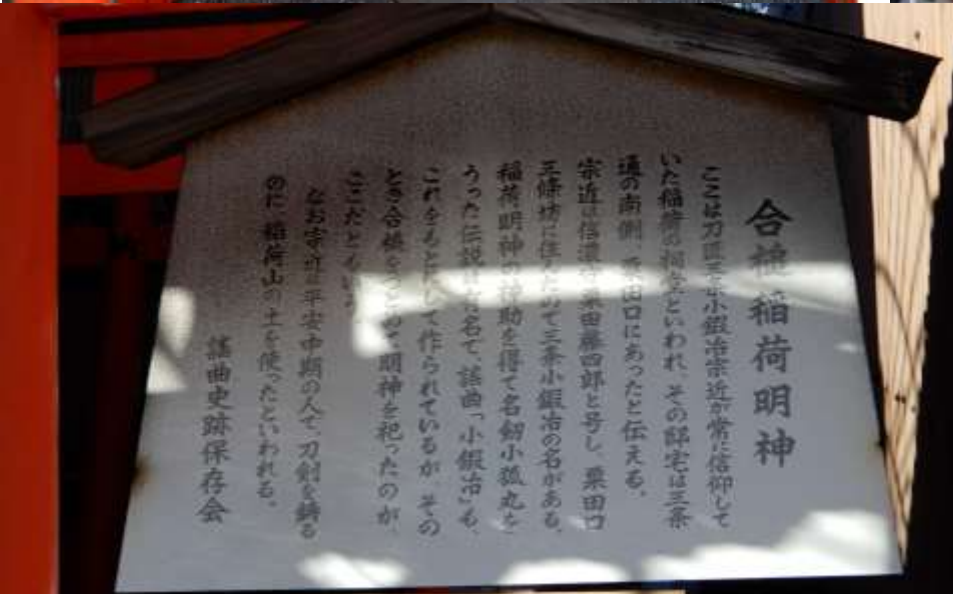 合槌稲荷明神
ここは刀匠三条小鍛冶宗近が常に信仰して
いた稲荷の祠堂といわれ、その邸宅は三条
通の南側、粟田口にあったと伝える。
宗近は信濃守粟田藤四郎と号し、粟田口
三條坊に住したので三条小鍛冶の名がある。
稲荷明神の神助を得て名劔小狐丸を
うった伝説は有名で、謡曲「小鍛冶」も、
これをもとにして作られているが、その
とき合槌をつとめて明神を祀ったのが
ここだともいう。
なお宗近は平安中期の人で、刀剣を鋳る
のに、稲荷山の土を使ったといわれる。
謡曲史跡保存会